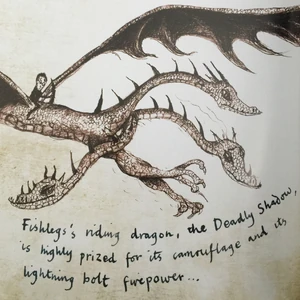 Fishlegs's riding dragon, the Deadly Shadow,
is highly prized for its camouflage and its
lightning bolt firepower...